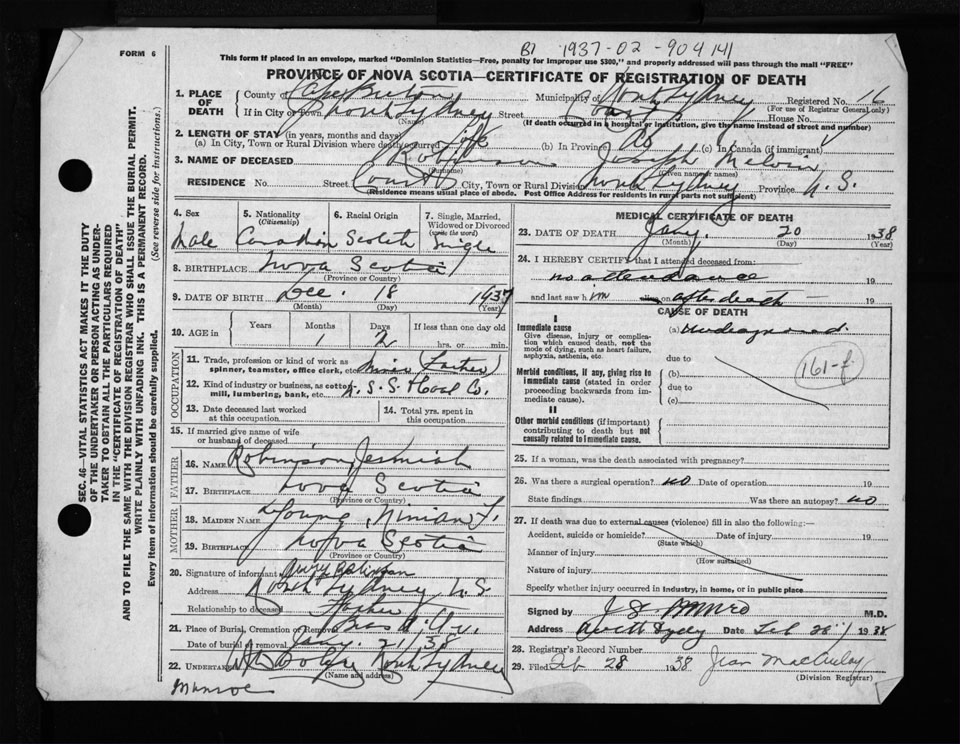 FORM 6
B1 1937-02-904141
This form if placed in an envelope, marked "Dominion Statistics—Free, penalty for improper use $300," and properly addressed will pass through the mail "FREE"
PROVINCE OF NOVA SCOTIA—CERTIFICATE OF REGISTRATION OF DEATH
1. PLACE OF DEATH County of Cape Breton Municipality of North Sydney Registered No. 6
(For use of Registrar General only)
If in City or Town North Sydney Street Court St House No.
(Name) (If death occurred in a hospital or institution, give the name instead of street and number)
2. LENGTH OF STAY (in years, months and days)
(a) In City, Town or Rural Division where death occurred Life (b) In Province (c) In Canada (if immigrant)
3. NAME OF DECEASED Robinson Joseph Melvin
(Surname) (Given name or names)
RESIDENCE No. Street Court St City, Town or Rural Division North Sydney Province N.S.
(Residence means usual place of abode. Post Office Address for residents in rural parts not sufficient)
4. Sex Male
5. Nationality (Citizenship) Canadian
6. Racial Origin Scotch
7. Single, Married, Widowed or Divorced (write the word) Single
8. BIRTHPLACE Nova Scotia
(Province or Country)
9. DATE OF BIRTH Dec. 18 1937
(Month) (Day) (Year)
10. AGE in Years Months Days If less than one day old
1 2 hrs. or min.
OCCUPATION
11. Trade, profession or kind of work as spinner, teamster, office clerk, etc. Miner (Father)
12. Kind of industry or business, as cotton mill, lumbering, bank, etc. N.S.S. & Coal Co.
13. Date deceased last worked at this occupation
14. Total yrs. spent in this occupation
15. If married give name of wife or husband of deceased
FATHER
16. NAME Robinson, Jermiah
17. BIRTHPLACE Nova Scotia
(Province or Country)
MOTHER
18. MAIDEN NAME Young, Ninian F.
19. BIRTHPLACE Nova Scotia
(Province or Country)
20. Signature of informant Robinson
Address North Sydney N.S.
Relationship to deceased Father
21. Place of Burial, Cremation or Removal Bras d'Or
Date of burial or removal Jany. 21/38
22. UNDERTAKER North Sydney
(Name and address)
Munroe
MEDICAL CERTIFICATE OF DEATH
23. DATE OF DEATH Jany. 20 1938
(Month) (Day) (Year)
24. I HEREBY CERTIFY that I attended deceased from:
no attendance 19
and last saw him after death 19
CAUSE OF DEATH
I
Immediate cause
Give disease, injury or complication which caused death, not the mode of dying, such as heart failure, asphyxia, asthenia, etc.
(a) undiagnosed
due to
161-f
Morbid conditions, if any, giving rise to immediate cause (stated in order proceeding backwards from immediate cause).
(b)
due to
(c)
II
Other morbid conditions (if important) contributing to death but not causally related to immediate cause.
25. If a woman, was the death associated with pregnancy?
26. Was there a surgical operation? no Date of operation 19
State findings Was there an autopsy? no
27. If death was due to external causes (violence) fill in also the following:—
Accident, suicide or homicide? Date of injury 19
(State which)
Manner of injury
(How sustained)
Nature of injury
Specify whether injury occurred in industry, in home, or in public place
Signed by J S Munro M.D.
Address North Sydney Date Feb 28 1938
28. Registrar's Record Number
29. Filed Feb 28 1938 Jean MacAulay
(Division Registrar)
SEC. 46—VITAL STATISTICS ACT MAKES IT THE DUTY
OF THE UNDERTAKER OR PERSON ACTING AS UNDER-
TAKER TO OBTAIN ALL THE PARTICULARS REQUIRED
IN THE "CERTIFICATE OF REGISTRATION OF DEATH"
AND TO FILE THE SAME WITH THE DIVISION REGISTRAR WHO SHALL ISSUE THE BURIAL PERMIT.
WRITE PLAINLY WITH UNFADING INK. THIS IS A PERMANENT RECORD.
Every item of information should be carefully supplied. (See reverse side for instructions.)